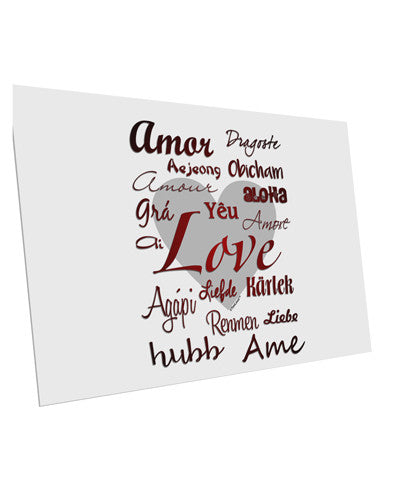 Amor Dragoste
Aejeong Obicham
Amour aloha
Grá Yêu Amore
Ai Love
Agápi Liefde Kärlek
Renmen Liebe
hubb Ame